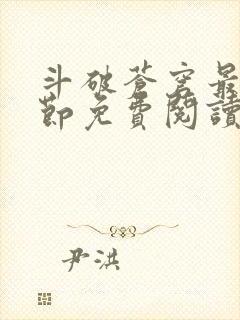 斗破苍穹最
節免費閱讀
尹洪